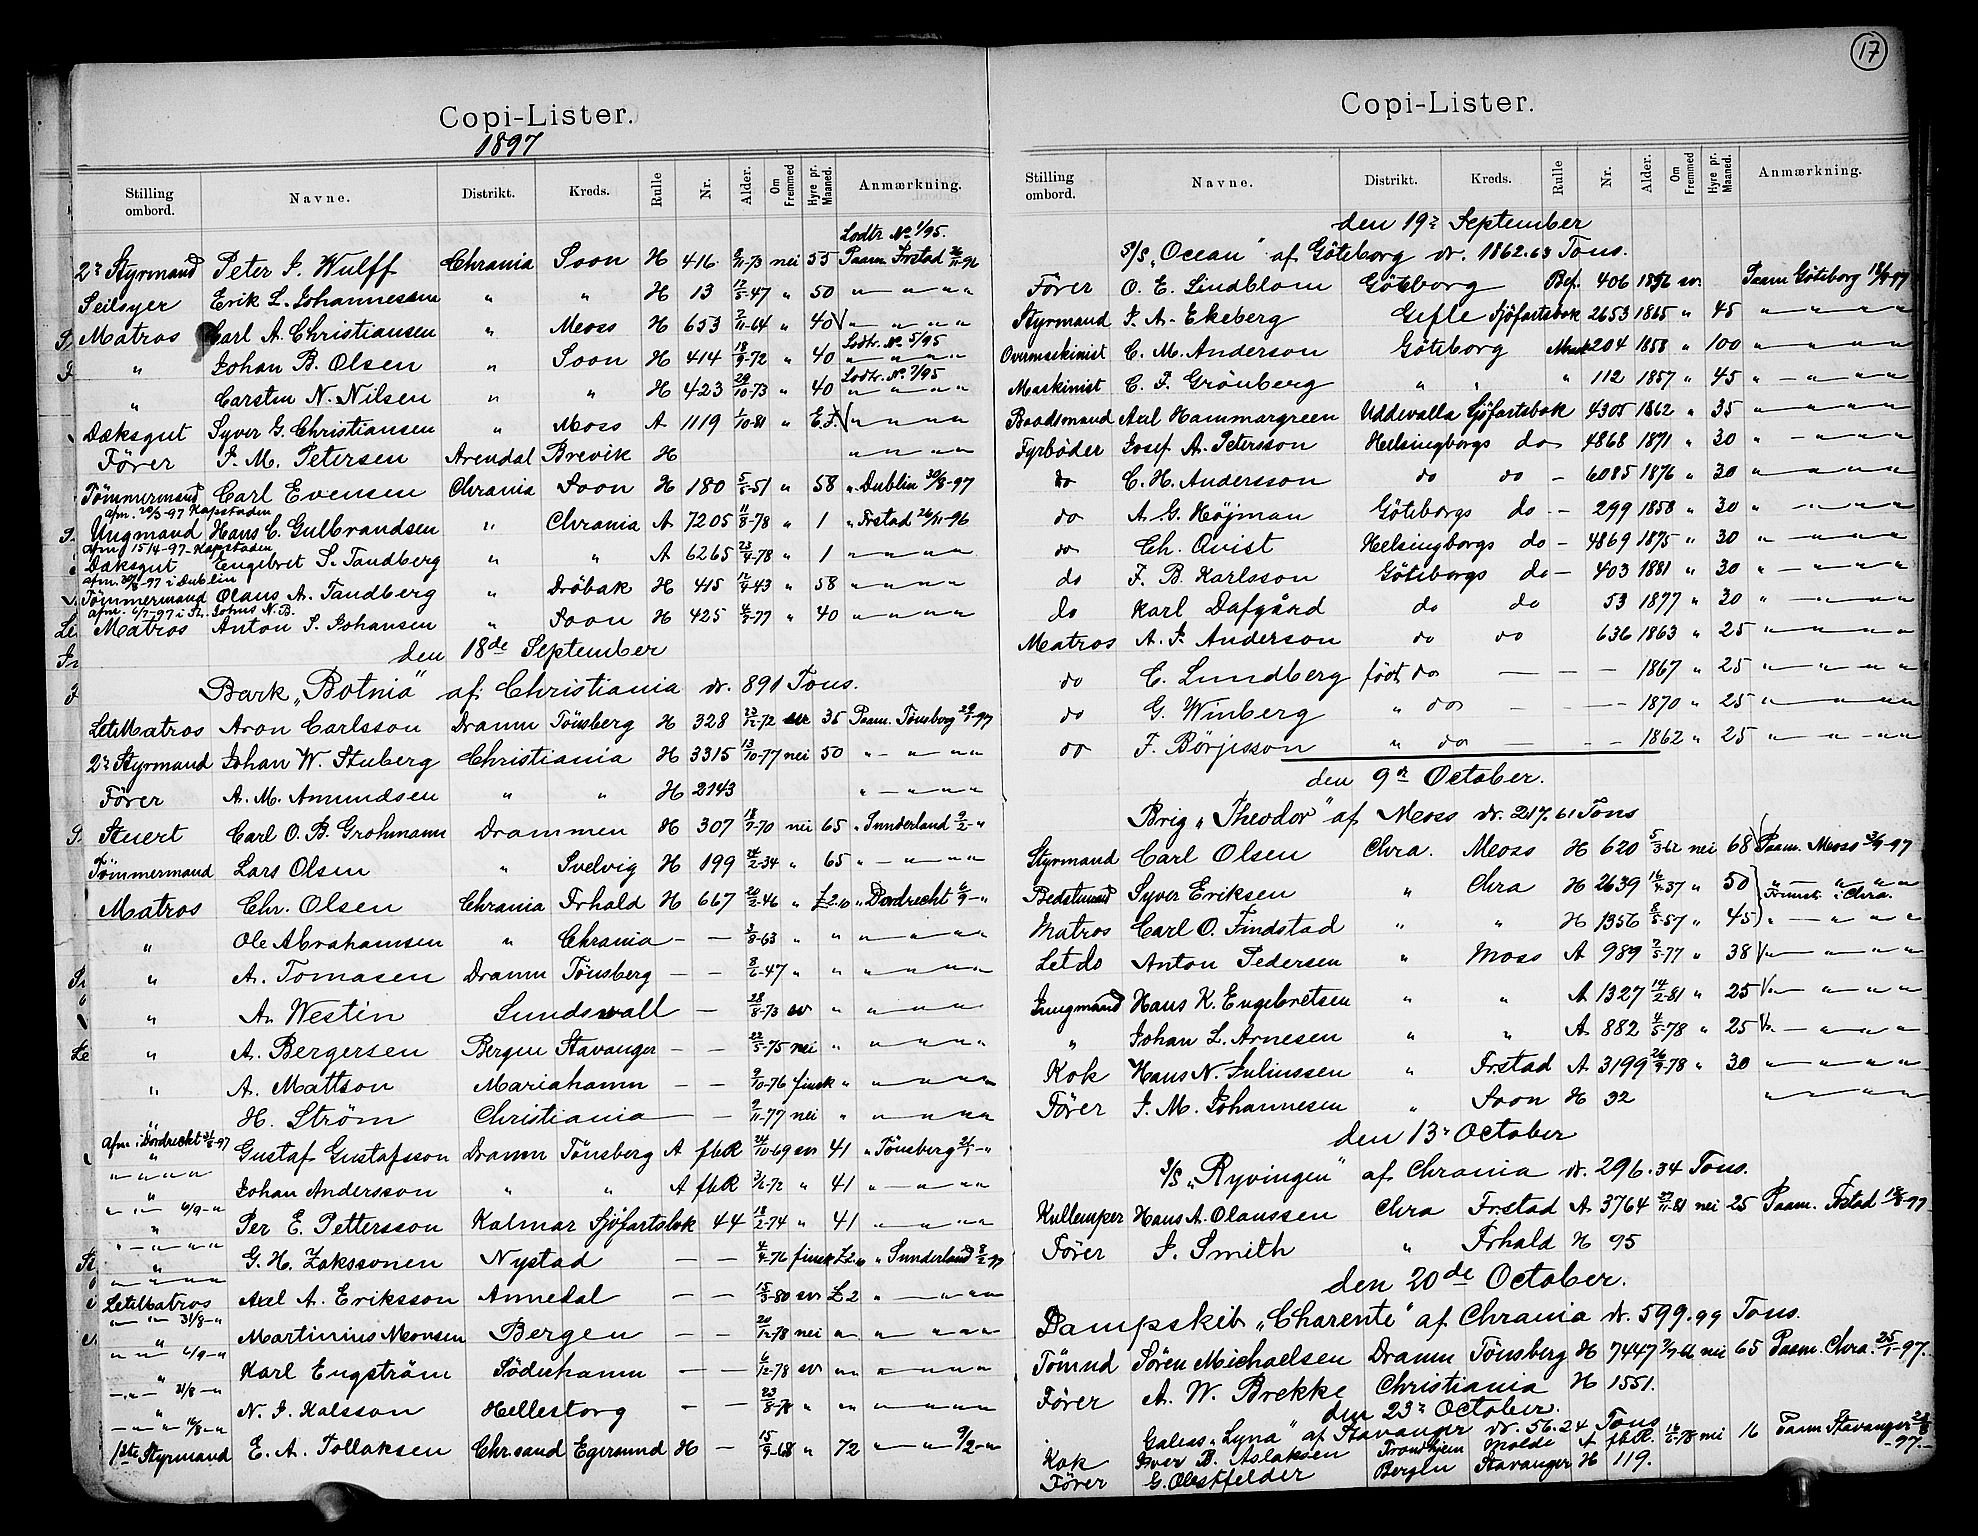 17
Copi-Lister.
1897
Stilling ombord. Navne. Distrikt. Kreds. Rulle Nr. Alder. Om Fremmed Hyre pr. Maaned. Anmærkning.
Lodtr No 1/95.
2r Styrmand Peter J. Wulff Chrania Soon H 416 nei 55 Paam. Frstad 26/11-96
Seilsyer Erik L. Johannessen " " H 13 12/5-47 " 50 " " " "
Matros Carl A. Christiansen " Moss H 653 2/11-64 " 40 " " " "
Lodtr. No. 5/95
" Johan B. Olsen " Soon H 414 18/9-72 " 40 " " " "
Lodtr. No. 7/95
" Carsten N. Nilsen " " H 423 29/10-73 " 40 " " " "
Dæksgut Syver G. Christiansen " Moss A 1119 1/10-81 " " " " "
Förer J. M. Petersen Arendal Brevik H " " " "
Tömmermand Carl Evensen Chrania Soon H 180 5/5-51 " 58 " Dublin 30/8-97
afm. 20/3-97 Kapstaden
Ungmand Hans C. Gulbrandsen " Chrania A 7205 11/8-78 " 1 " Frstad 26/11-96
afm. 15/4-97 Kapstaden
Dæksgut Engebret S. Tandberg " " A 6265 23/4-78 " 1 " " " "
afm. 30/8-97 i Dublin
Tömmermand Olaus A. Tandberg " Dröbak H 415 12/9-43 " 58 " " " "
afm. 6/7-97 i St. Johns N.B.
Matros Anton S. Johansen " Soon H 425 -77 " 40 " " " "
den 18de September
Bark "Botnia" af Christiania dr. 891 Tons.
LetMatros Aron Carlsson Dramn Tönsberg H 328 23/12-72 sv 35 Paam. Tönsberg 29/1-97
2r Styrmand Johan W. Stuberg Christiania H 3315 13/10-77 nei 50 " " " "
Förer A. M. Amundsen " " H 2143 " " " "
Stuert Carl O. B. Grohmann Drammen H 307 18/7-70 nei 65 " Sunderland 9/2-"
Tömmermand Lars Olsen " Svelvig H 199 24/2-34 " 65 " " " "
Matros Chr. Olsen Chrania Frhald H 667 20/2-46 " £2.10 " Dordrecht 6/9-"
" Ole Abrahamsen " Chrania — — 3/8-63 " " " " " "
" A. Tomasen Dramn Tönsberg — — 8/6-47 " " " " " "
" A. Westin Sundswall — 28/8-73 sv " " " " "
" A. Bergersen Bergen Stavanger — — 22/5-75 nei " " " " "
" A. Mattson Mariahamn — — 9/10-76 finsk " " " " "
" H. Ström Christiania — — 9/11-77 nei " " " " "
afm. i Dordrecht 31/8-97
" Gustaf Gustafsson Dramn Tönsberg A fbR 24/10-69 sv 41 " Tönsberg 21/1-"
" " " "
" Johan Andersson " " A fbR 3/12-72 " 41 " " " "
" " 6/9-"
" Per E. Pettersson Kalmar Sjöfartsbok 44 18/2-74 " 41 " " " "
" " " "
" G. H. Zakssonen Nystad — — 4/4-76 finsk £2.10 " Sunderland 8/2-97
" " " "
LetMatros Axel A. Eriksson Annedal — — 15/3-80 sv £2 " " " "
" " 31/8-"
" Martinius Monsen Bergen — — 20/12-78 nei " " " " "
" " 6/9-"
" Karl Engström Söderhamn — — 6/12-78 sv " " " " "
" " 31/8-"
" N. J. Kalsson Hellestorg — — 23/8-78 " " " " " "
" " 16/8-"
1ste Styrmand E. A. Tollaksen Chr.sand Egersund H — 15/9-68 " 72 " " 9/2-"
Copi-Lister.
Stilling ombord. Navne. Distrikt. Kreds. Rulle Nr. Alder. Om Fremmed Hyre pr. Maaned. Anmærkning.
den 19r September
S/S "Ocean" af Göteborg dr. 1862.63 Tons.
Förer O. E. Lindblom Göteborg Bef. 406 1856 sv. Paam Göteborg 18/9-97
Styrmand J. A. Ekeberg Gefle Sjöfartsbok 2653 1865 " 45 " " " "
Ovrmaskinist C. M. Anderson Göteborg Mask 204 1858 " 100 " " " "
Maskinist C. F. Grönberg " " " 112 1857 " 45 " " " "
Baadsmand Axel Hammargreen Uddevalla Sjöfartsbok 4305 1862 " 35 " " " "
Fyrböder Josef A. Petersson Helsingborgs do 4868 1871 " 30 " " " "
do C. H. Andersson do do — 6085 1876 " 30 " " " "
do A. G. Höjman Göteborgs do — 299 1858 " 30 " " " "
do Ch. Qvist Helsingborgs do — 4869 1875 " 30 " " " "
do F. B. Karlsson Göteborgs do — 403 1881 " 30 " " " "
do Karl Dafgård do do 53 1877 " 30 " " " "
Matros A. J. Anderson do do 636 1863 " 25 " " " "
do C. Lundberg född do — — 1867 " 25 " " " "
do G. Winberg " do — — 1870 " 25 " " " "
do F. Börjesson " do — — 1862 " 25 " " " "
den 9de October.
Brig "Theodor" af Moss dr. 217.61 Tons
Styrmand Carl Olsen Chra. Moss H 620 5/3-62 nei 68 Paam. Moss 3/9-97
Bedstmand Syver Eriksen " Chra H 2639 16/4-37 " 50 " " " "
Frmst. i Chra.
Matros Carl O. Findstad " " H 1356 8/5-57 " 45 " " " "
Letdo Anton Pedersen " Moss A 989 2/5-77 " 38 " " " "
Jungmand Hans K. Engebretsen " " A 1327 14/2-81 " 25 " " " "
" Johan L. Arnesen " " A 882 4/5-78 " 25 " " " "
Kok Hans N. Juliussen " Frstad A 3199 26/9-78 " 30 " " " "
Förer J. M. Johannesen " Soon H 32 " " " "
den 13r October
S/S "Ryvingen" af Chrania dr. 296.34 Tons.
Kullemper Hans A. Olaussen Chra Frstad A 3764 27/11-81 nei 25 Paam. Frstad 18/8-97
Förer J. Smith " Frhald H 95
den 20de October.
Dampskib "Charente" af Chrania dr. 599.99 Tons.
Tömmd Sören Michaelsen Dramn Tönsberg H 7447 nei 65 Paam. Chra. 25/1-97.
Förer A. W. Brekke Christiania H 1551.
den 23r October.
Galeas "Lyna" af Stavanger dr. 56.24 Tons
Kok Iver B. Aslaksen Trondhjem Molde A fbR. 18/6-78 nei 16 Paam Stavanger -97.
Förer G. Obstfelder Bergen Stavanger H 119.